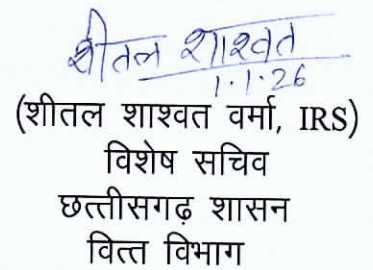 शीतल शाश्वत
1.1.26
(शीतल शाश्वत वर्मा, IRS)
विशेष सचिव
छत्तीसगढ़ शासन
वित्त विभाग